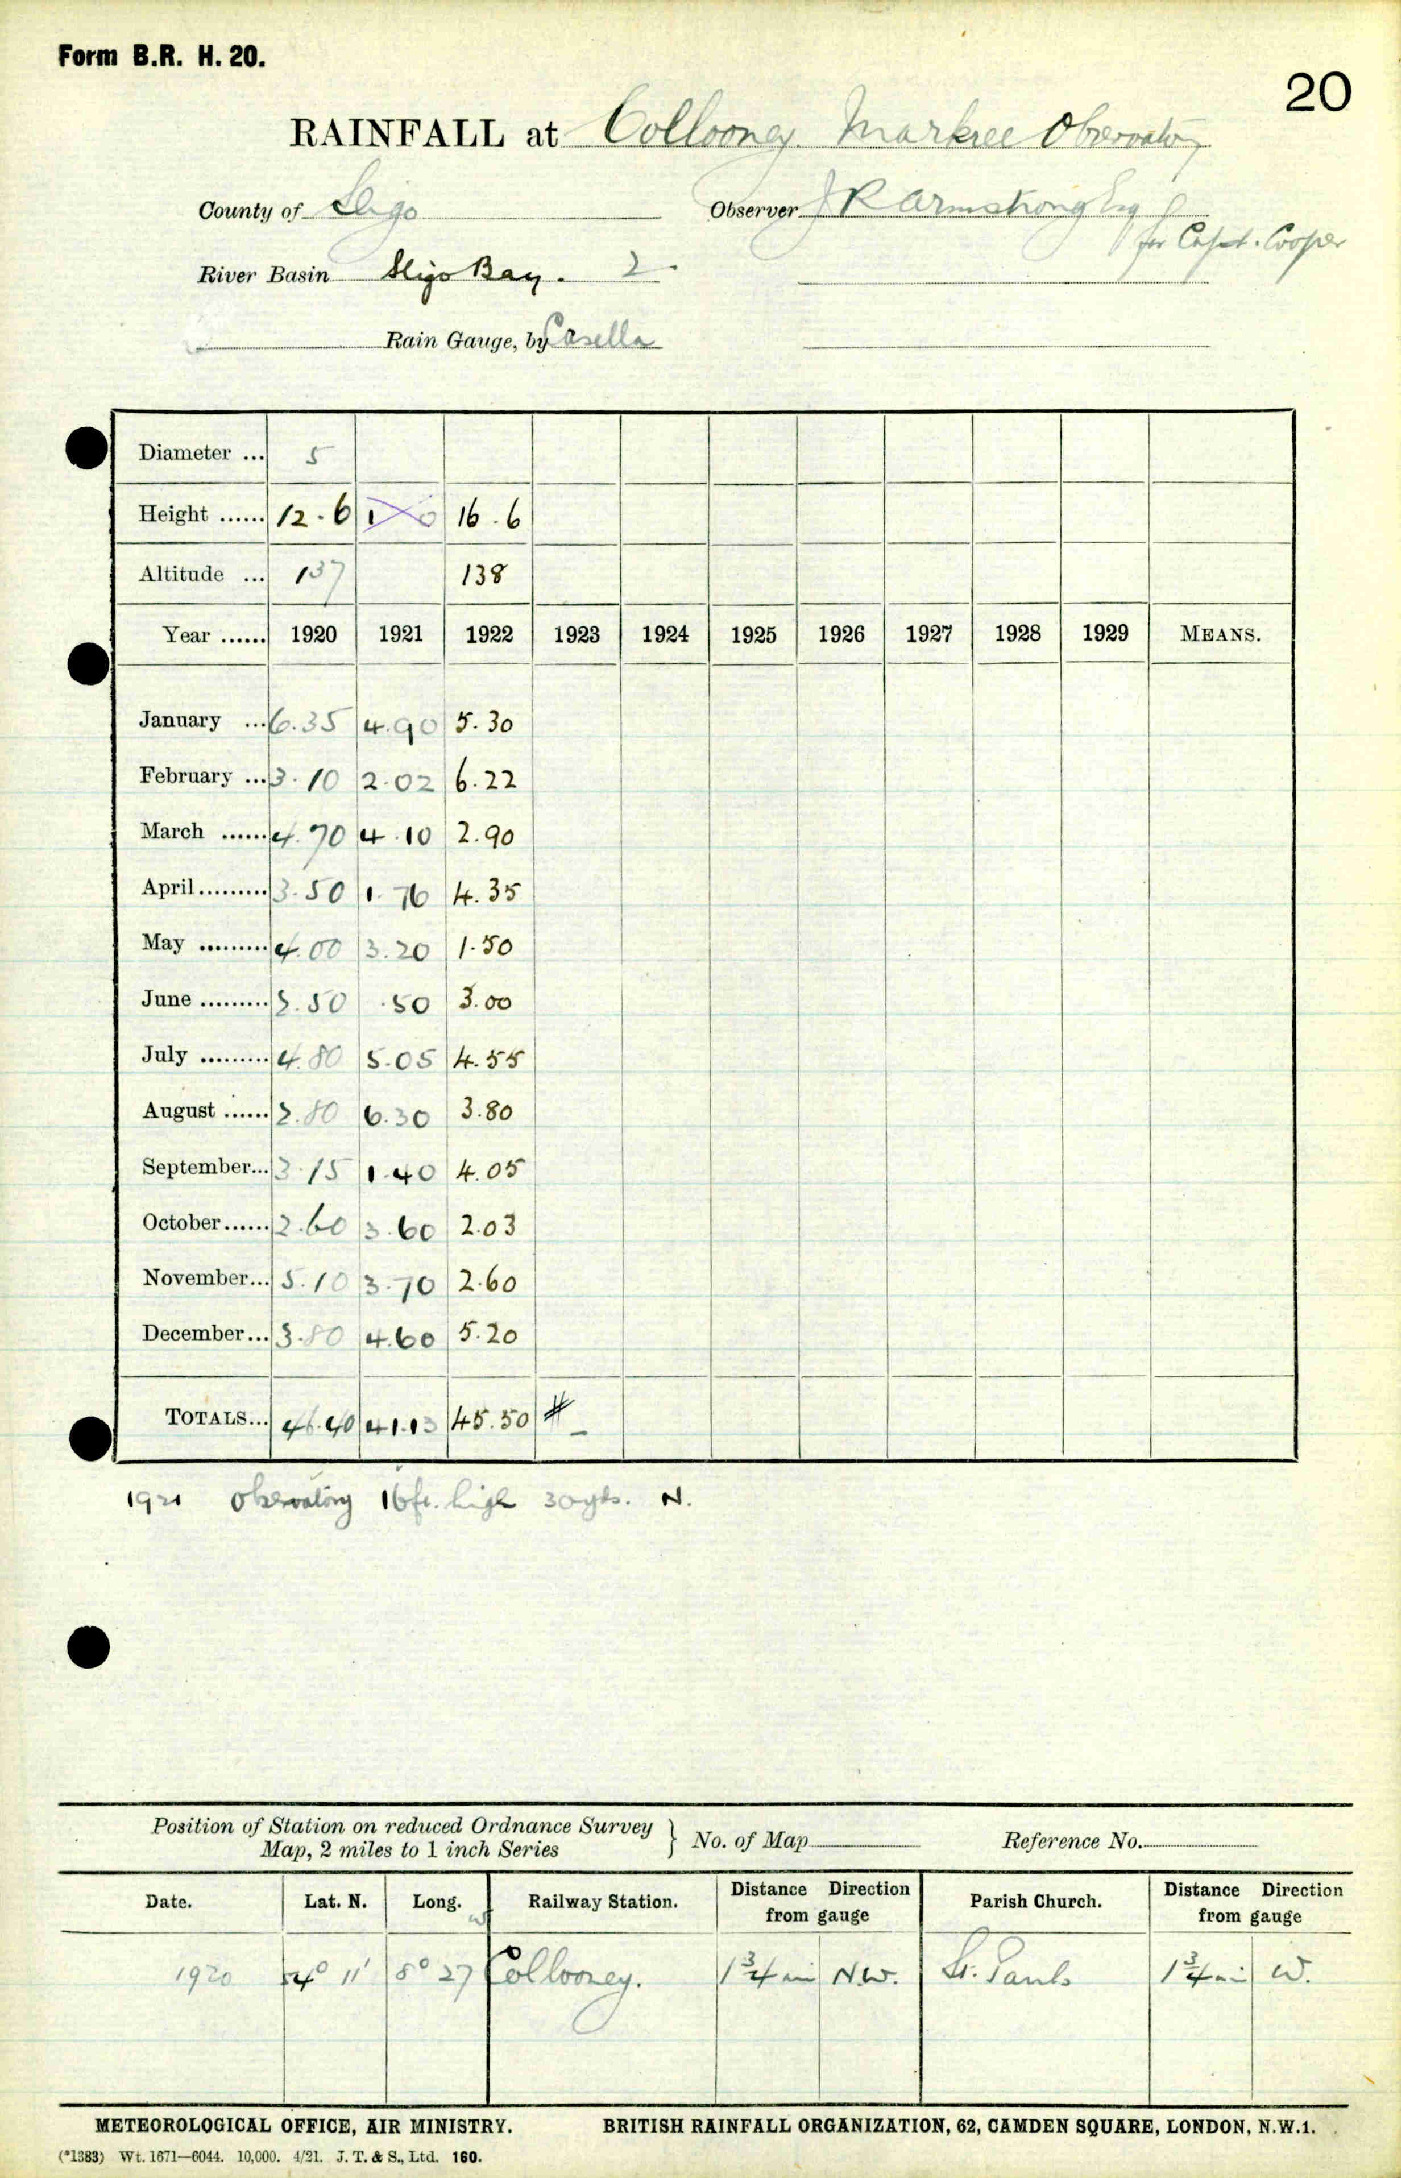 Form B.R. H. 20.
20
RAINFALL at Collooney. Markree Observatory
County of Sligo Observer J R Armstrong Esq
for Capt. Cooper
River Basin Sligo Bay. 2.
Rain Gauge, by Casella
Diameter ... 5
Height ...... 12.6 1 0 16.6
Altitude ... 137 138
Year ...... 1920 1921 1922 1923 1924 1925 1926 1927 1928 1929 MEANS.
January ... 6.35 4.90 5.30
February ... 3.10 2.02 6.22
March ...... 4.70 4.10 2.90
April ......... 3.50 1.76 4.35
May ......... 4.00 3.20 1.50
June ......... 2.50 .50 3.00
July ......... 4.80 5.05 4.55
August ...... 2.80 6.30 3.80
September... 3.15 1.40 4.05
October...... 2.60 3.60 2.03
November... 5.10 3.70 2.60
December... 3.80 4.60 5.20
TOTALS... 46.40 41.13 45.50 #
1921 Observatory 16ft. high 30yds. N.
Position of Station on reduced Ordnance Survey
Map, 2 miles to 1 inch Series } No. of Map Reference No.
Date. Lat. N. Long. W Railway Station. Distance Direction from gauge Parish Church. Distance Direction from gauge
1920 54° 11' 8° 27 Collooney. 1 3/4 mi N.W. St. Pauls 1 3/4 mi W.
METEOROLOGICAL OFFICE, AIR MINISTRY. BRITISH RAINFALL ORGANIZATION, 62, CAMDEN SQUARE, LONDON, N.W.1.
(*1383) Wt. 1671—6044. 10,000. 4/21. J. T. & S., Ltd. 160.